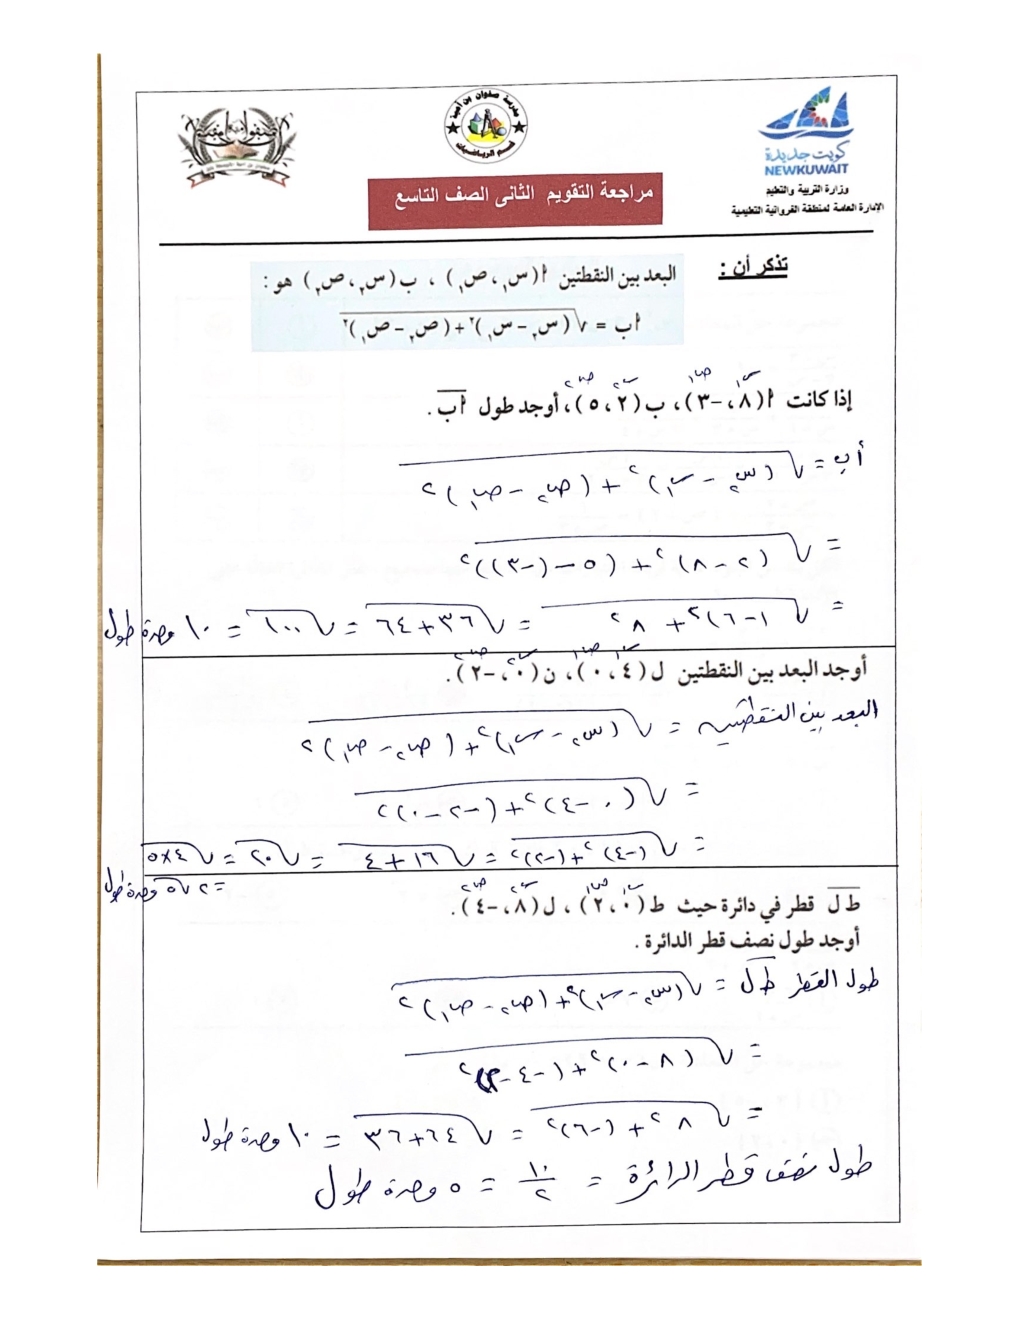 مدرسة صفوان بن أمية
قسم الرياضيات
كويت جديدة
NEWKUWAIT
وزارة التربية والتعليم
الإدارة العامة لمنطقة الفروانية التعليمية
مراجعة التقويم الثانى الصف التاسع
تذكر أن :
البعد بين النقطتين أ(س١، ص١) ، ب(س٢، ص٢) هو :
أب = √(س٢ − س١)² + (ص٢ − ص١)²
إذا كانت أ(٨، −٣)، ب(٢، ٥)، أوجد طول أب .
أب = √(س٢ − س١)² + (ص٢ − ص١)²
= √(٢ − ٨)² + (٥ − (−٣))²
= √(−٦)² + ٨² = √٣٦ + ٦٤ = √١٠٠ = ١٠ وحدة طول
أوجد البعد بين النقطتين ل(٤، ٠)، ن(٠، −٢).
البعد بين النقطتين = √(س٢ − س١)² + (ص٢ − ص١)²
= √(٠ − ٤)² + (−٢ − ٠)²
= √(−٤)² + (−٢)² = √١٦ + ٤ = √٢٠ = √٤×٥
= ٢√٥ وحدة طول
ط ل قطر في دائرة حيث ط(٠، ٢) ، ل(٨، −٤).
أوجد طول نصف قطر الدائرة .
طول القطر ط ل = √(س٢ − س١)² + (ص٢ − ص١)²
= √(٨ − ٠)² + (−٤ − ٢)²
= √٨² + (−٦)² = √٦٤ + ٣٦ = ١٠ وحدة طول
طول نصف قطر الدائرة = ١٠/٢ = ٥ وحدة طول